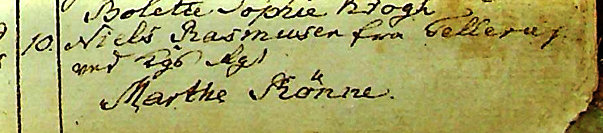 Bolette Sophie Krogh
10. Niels Rasmusen fra Pellerup
ved
Marthe Rönne.